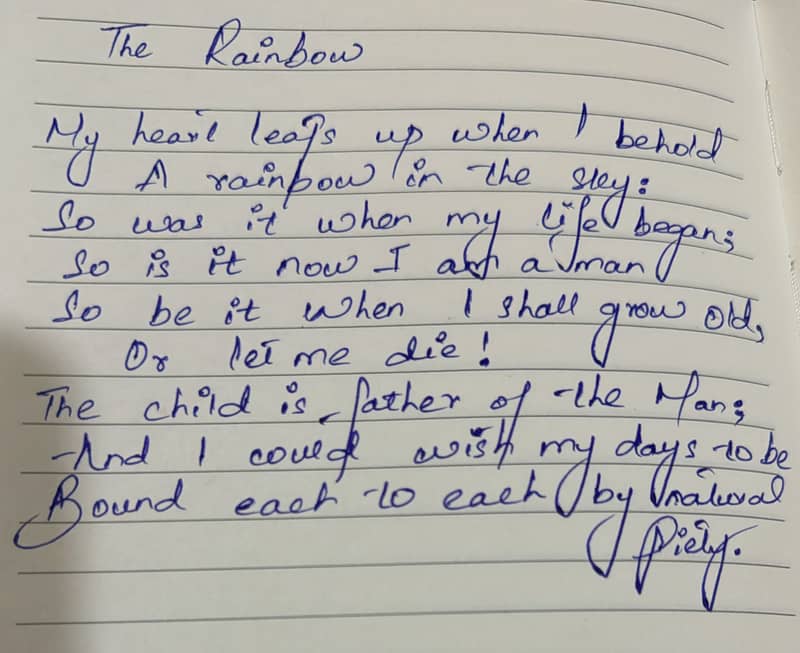 The Rainbow
My heart leaps up when I behold
A rainbow in the sky:
So was it when my life began;
So is it now I am a man
So be it when I shall grow old,
Or let me die!
The child is father of the Man;
And I could wish my days to be
Bound each to each by natural
Piety.